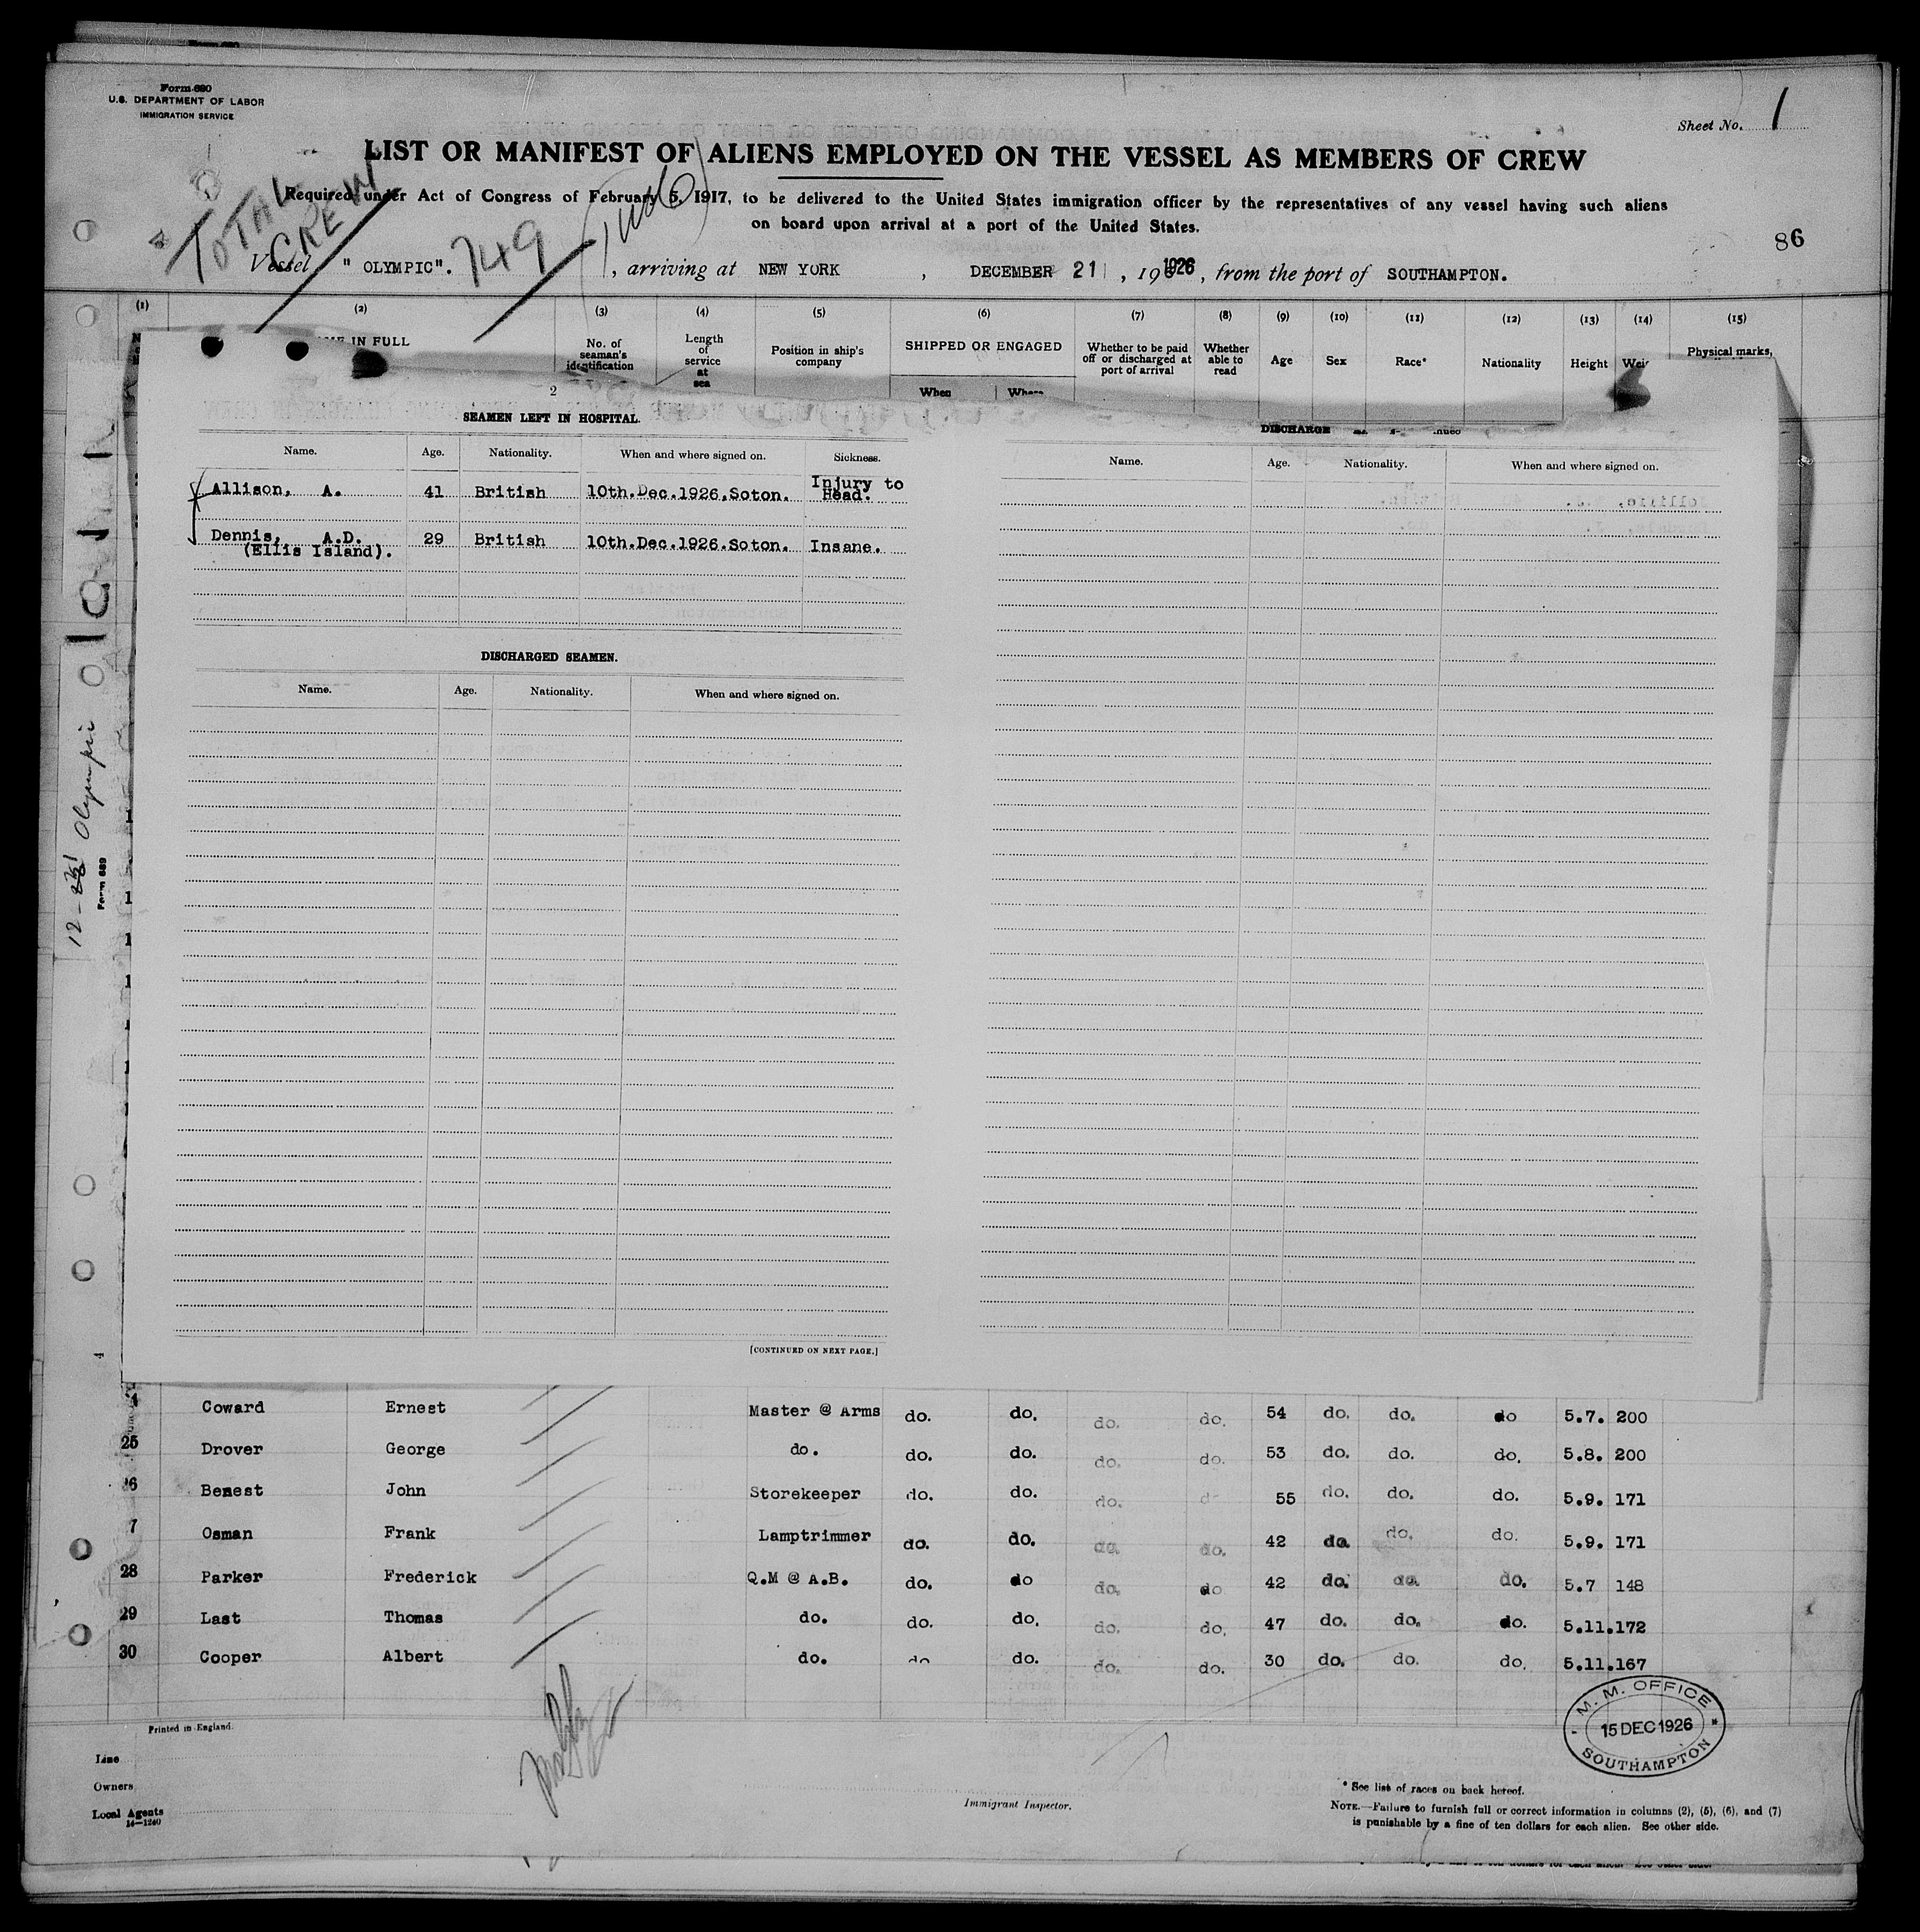 Form 690
U.S. DEPARTMENT OF LABOR
IMMIGRATION SERVICE
Sheet No. 1
LIST OR MANIFEST OF ALIENS EMPLOYED ON THE VESSEL AS MEMBERS OF CREW
Required under Act of Congress of February 5, 1917, to be delivered to the United States immigration officer by the representatives of any vessel having such aliens
on board upon arrival at a port of the United States.
TOTAL
CREW
749
86
Vessel " OLYMPIC". , arriving at NEW YORK , DECEMBER 21 , 1926, from the port of SOUTHAMPTON.
(1) (2) (3) (4) (5) (6) (7) (8) (9) (10) (11) (12) (13) (14) (15)
IN FULL No. of seaman's identification Length of service at sea Position in ship's company SHIPPED OR ENGAGED Whether to be paid off or discharged at port of arrival Whether able to read Age Sex Race* Nationality Height Physical marks,
When Where
2
SEAMEN LEFT IN HOSPITAL.
Name. Age. Nationality. When and where signed on. Sickness.
Allison, A. 41 British 10th.Dec.1926.Soton. Injury to Head.
Dennis, A.D. 29 British 10th.Dec.1926.Soton. Insane.
(Ellis Island).
DISCHARGED SEAMEN.
Name. Age. Nationality. When and where signed on.
[CONTINUED ON NEXT PAGE.]
DISCHARGE
Name. Age. Nationality. When and where signed on.
12-21 Olympic
Form 689
4 Coward Ernest Master @ Arms do. do. do. do. 54 do. do. do 5.7. 200
25 Drover George do. do. do. do. do. 53 do. do. do. 5.8. 200
6 Benest John Storekeeper do. do. do. 55 do. do. do. 5.9. 171
7 Osman Frank Lamptrimmer do. do. do. do. 42 do. do. do. 5.9. 171
28 Parker Frederick Q.M @ A.B. do. do do. do 42 do. do. do. 5.7 148
29 Last Thomas do. do. do. do. do. 47 do. do. do. 5.11. 172
30 Cooper Albert do. do. do. do. do. 30 do. do. do. 5.11. 167
M. M. OFFICE
15 DEC 1926
SOUTHAMPTON
Printed in England.
Line
Owners
Local Agents
14—1240
Immigrant Inspector.
* See list of races on back hereof.
NOTE.—Failure to furnish full or correct information in columns (2), (5), (6), and (7)
is punishable by a fine of ten dollars for each alien. See other side.